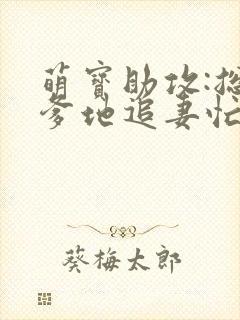 萌宝助攻:总
爹地追妻忙
葵梅太郎